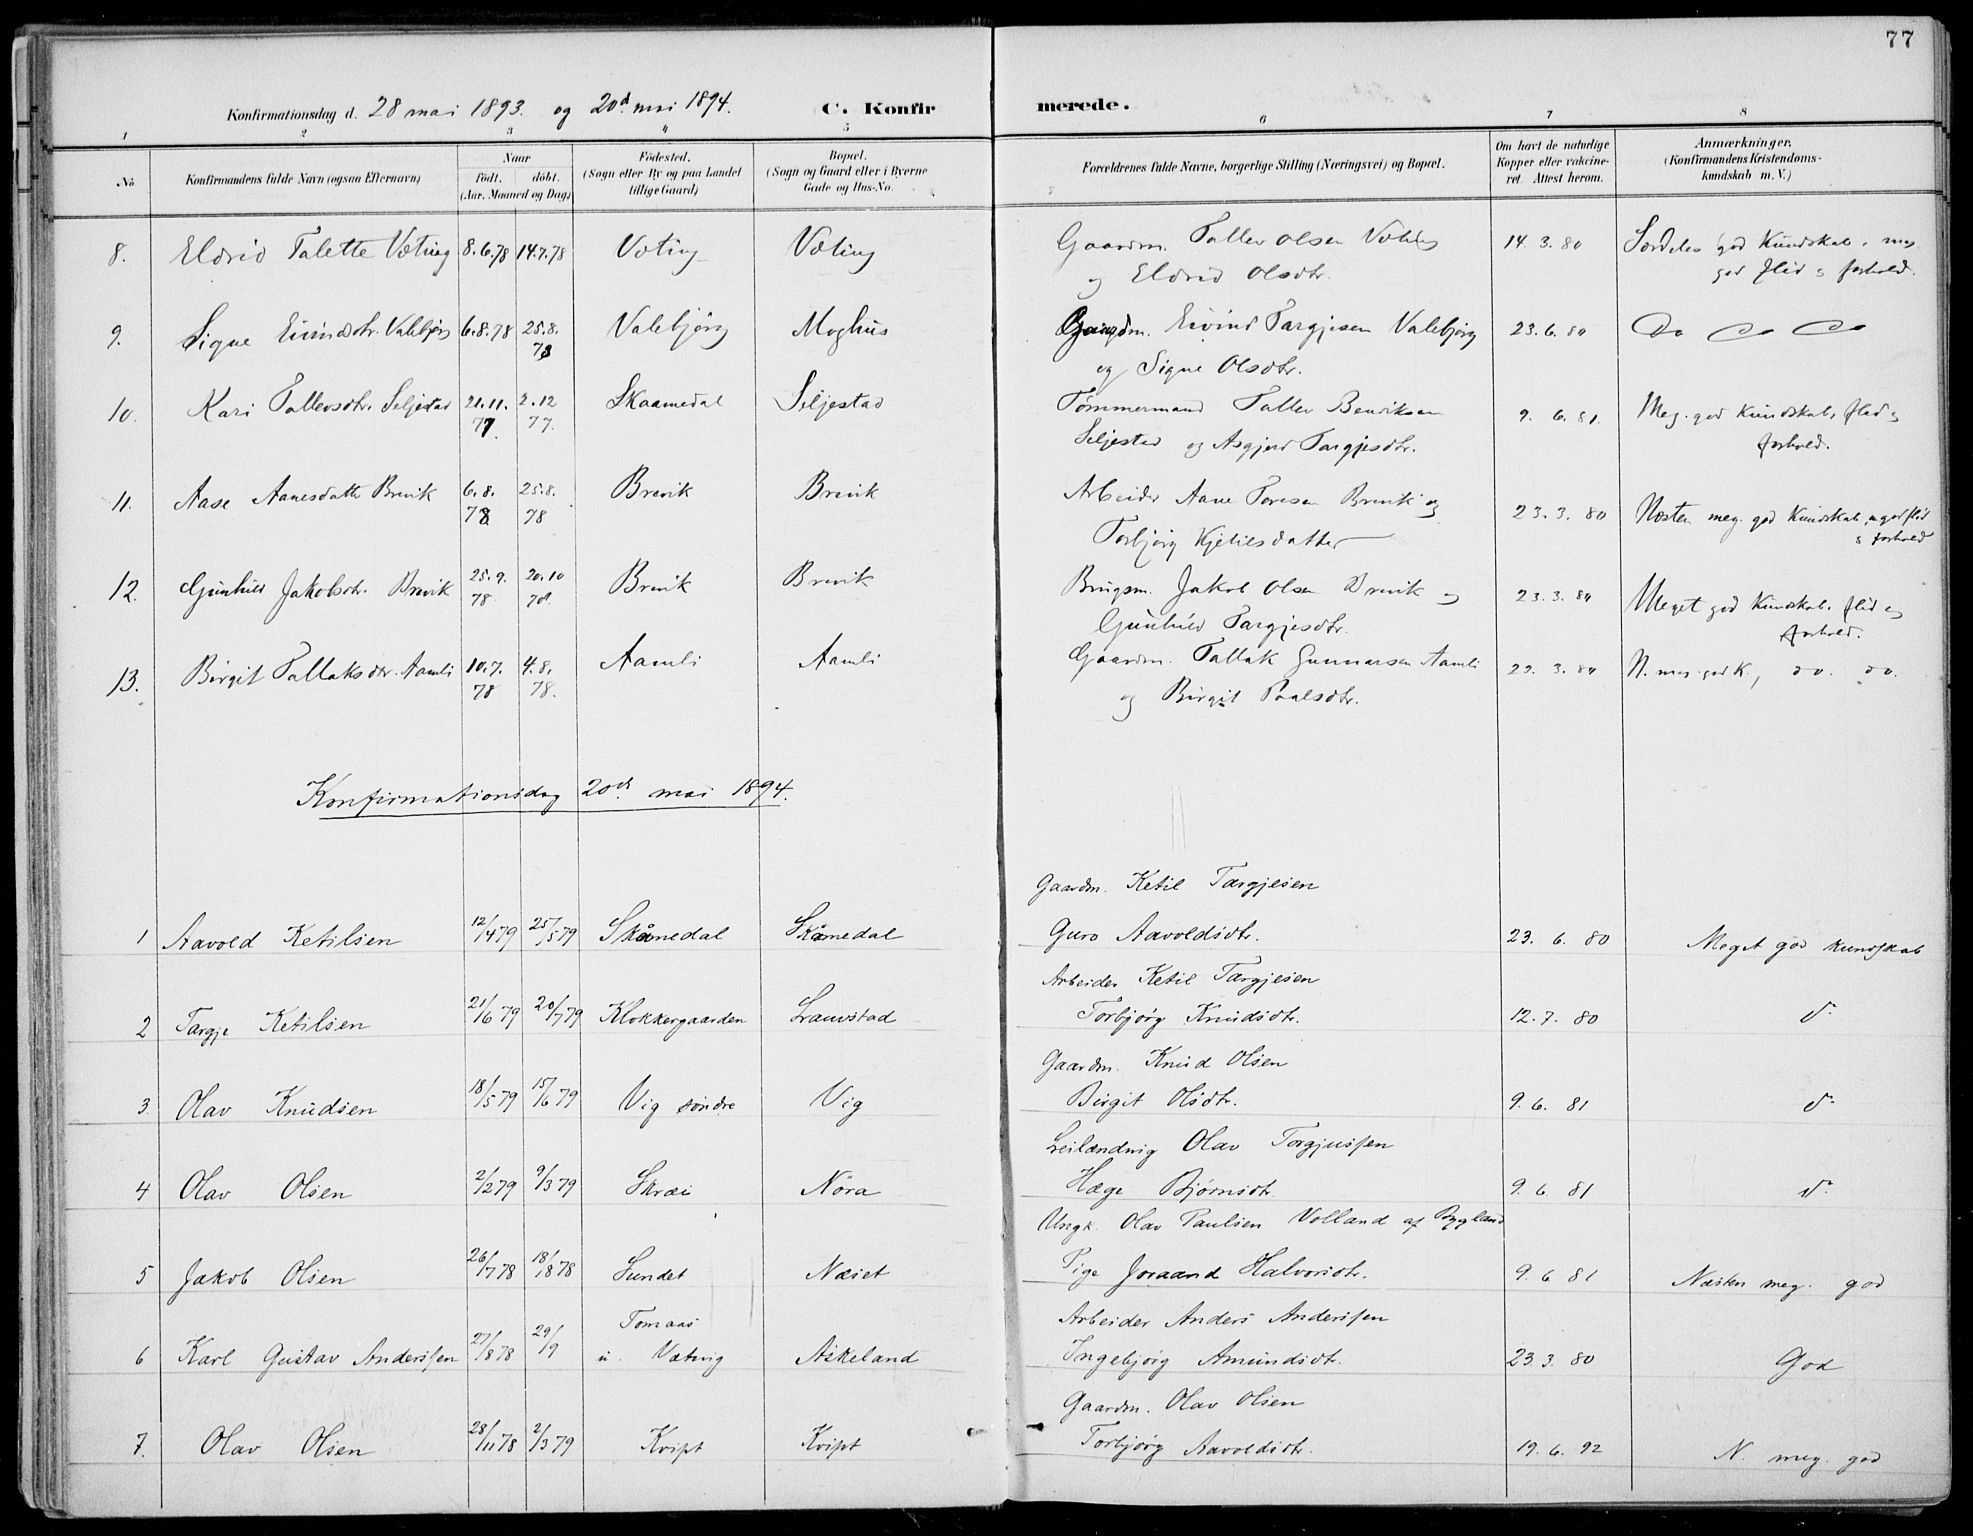 77
Konfirmationsdag d. 28 mai 1893. og 20d mai 1894. C. Konfirmerede.
1 2 3 4 5 6 7 8
No Konfirmandens fulde Navn (ogsaa Efternavn) Naar født. døbt. (Aar, Maaned og Dag) Fødested. (Sogn eller By og paa Landet tillige Gaard) Bopæl. (Sogn og Gaard eller i Byerne Gade og Hus-No. Forældrenes fulde Navne, borgerlige Stilling (Næringsvei) og Bopæl. Om havt de naturlige Kopper eller vakcineret. Attest herom. Anmærkninger. (Konfirmandens Kristendomskundskab m. V.)
8. Eldrid Talette Væting 8.6.78 14.7.78 Væting Væting Gaardm. Tallev Olsen Væting 14. 3. 80 Særdeles god Kundskab, meg
og Eldrid Olsdtr. god flid o forhold.
9. Signe Eivindsdtr. Valebjørg 6.8.78 25.8. 78 Valebjørg Moghus Gaardm. Eivind Targjesen Valebjørg 23. 6. 80 Do
og Signe Olsdtr.
10. Kari Tallevsdtr. Seljestad 21.11. 77. 2.12 77. Skaamedal Siljestad Tømmermand Tallev Benriksen 9. 6. 81. Meg. god Kundskab, flid og
Seljestad og Asgjerd Targjesdtr. forhold.
11. Aase Aanesdatter Brevik 6.8. 78 25.8. 78 Brevik Brevik Arbeider Aane Toresen Brevik og 23. 3. 80 Næsten meg. god Kundskab, god flid
Torbjørg Kjetilsdatter o forhold
12. Gunhild Jakobsdtr. Brevik 25.9. 78. 20.10 78. Brevik Brevik Brugsm. Jakob Olsen Brevik og 23. 3. 80 Meget god Kundskab, flid og
Gunhild Targjesdtr. forhold.
13. Birgit Tallaksdtr. Aamli 10.7. 78 4.8. 78. Aamli Aamli Gaardm. Tallak Gunnarsen Aamli 23. 3. 80 N. meg. god K., do. do.
og Birgit Paalsdtr.
Konfirmationsdag 20de mai 1894.
Gaardm. Ketil Targjesen
1 Aavold Ketilsen 12/4 79 25/5 79 Skåmedal Skåmedal Guro Aavoldsdtr. 23. 6. 80 Meget god kundskab
Arbeider Ketil Targjesen
2 Targje Ketilsen 21/6 79 20/7 79 Klokkergaarden Lauvstad Torbjørg Knudsdtr. 12. 7. 80 do
Gaardm. Knud Olsen
3. Olav Knudsen 18/5 79 15/6 79 Vig søndre Vig Birgit Olsdtr. 9. 6. 81 do
Leilændnig Olav Torgjussen
4 Olav Olsen 2/2 79 9/3 79 Skræi Nöra Hæge Bjørnsdtr. 9. 6. 81 do
Ungk. Olav Paulsen Volland af Bygland
5 Jakob Olsen 26/7 78 18/8 78 Sundet Næset Pige Joraand Halvorsdtr. 9. 6 81 Næsten meg. god
Tomaas Arbeider Anders Anderssen
6 Karl Gustav Anderssen 27/8 78 29/9 u. Væting Askeland Ingebjørg Amundsdtr. 23. 3. 80 God
Gaardm. Olav Olsen
7. Olav Olsen 28/11 78 2/3 79 Kvipt Kvipt Torbjørg Aavoldsdtr. 19. 6. 92 N. meg. god